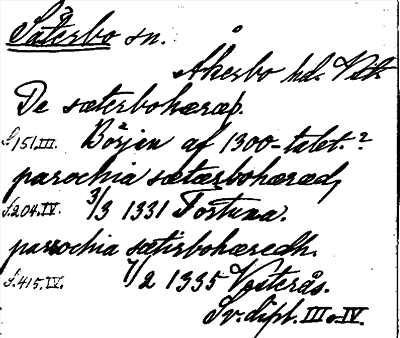 Säterbo sn.
Åkerbo hd. Vstm
De sæterbohæræþ.
S. 151. III. Början af 1300-talet.?
parochia sætærbohæræd,
S. 204. IV. 3/3 1331 Fortuna.
parrochia sætirbohæredh.
S. 415. IV. 7/2 1335 Västerås.
Sv. dipl. III o. IV.